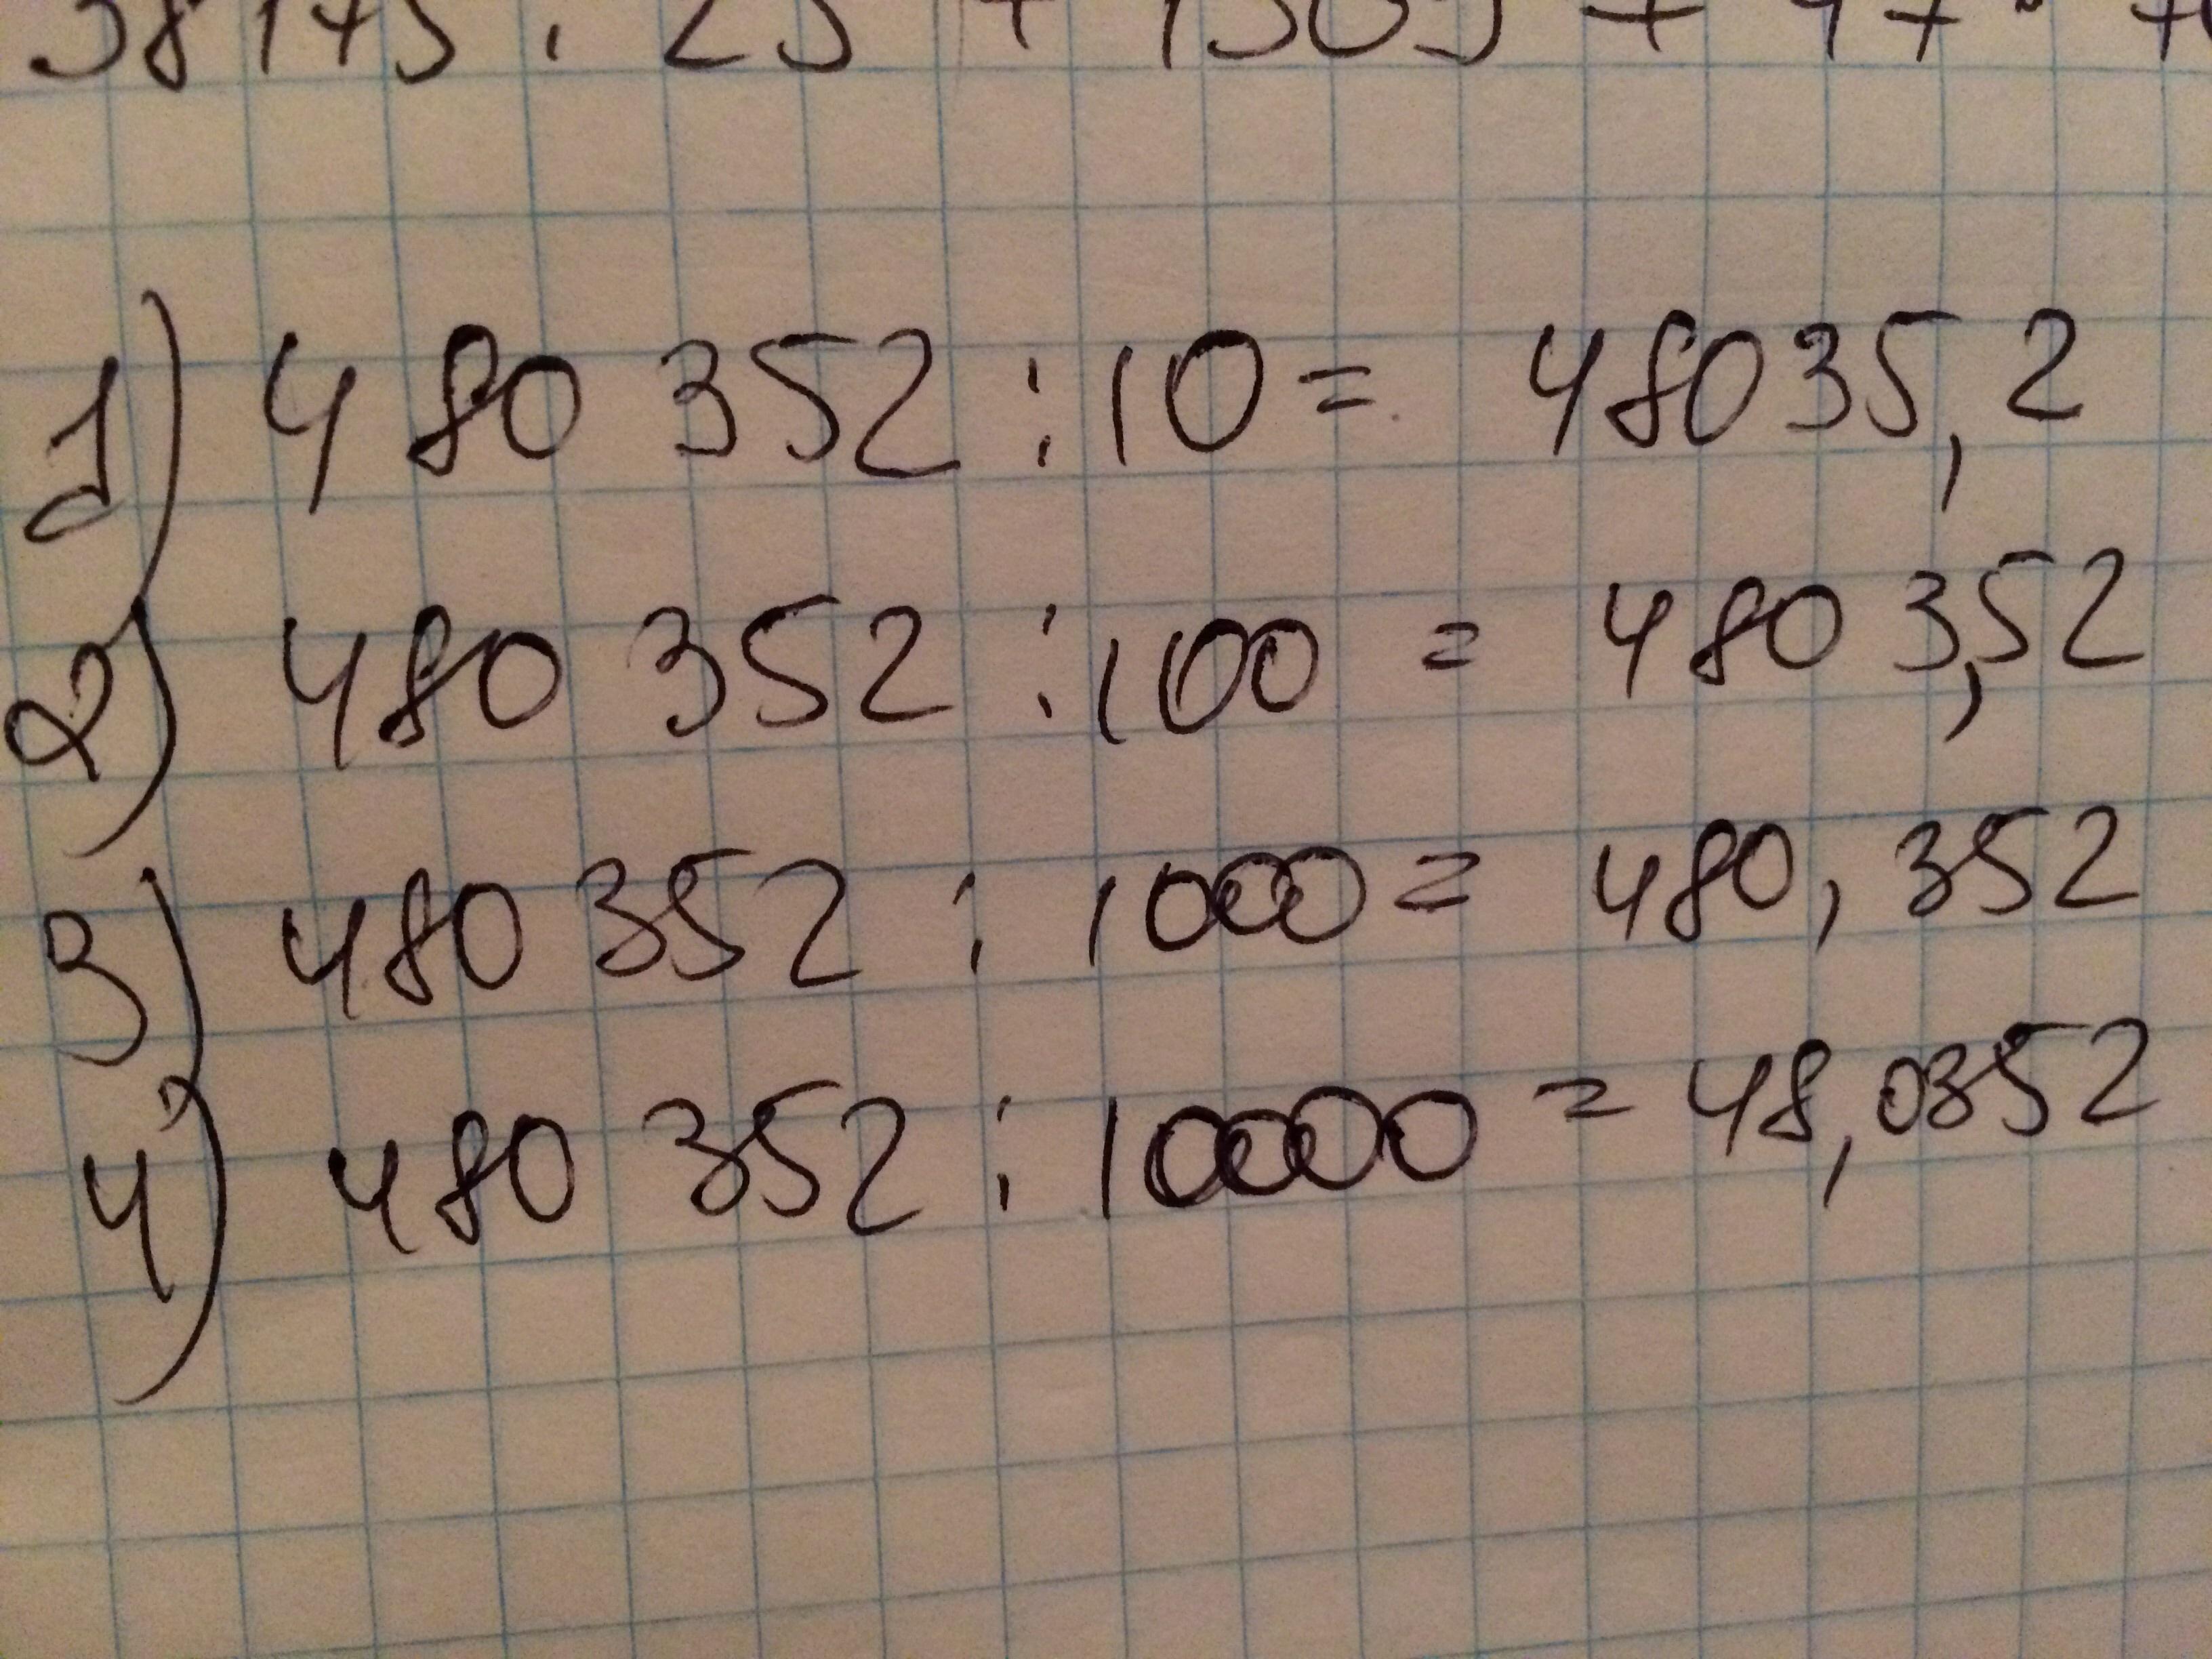 1) 480 352 : 10 = 48035,2
2) 480 352 : 100 = 4803,52
3) 480 352 : 1000 = 480,352
4) 480 352 : 10000 = 48,0352